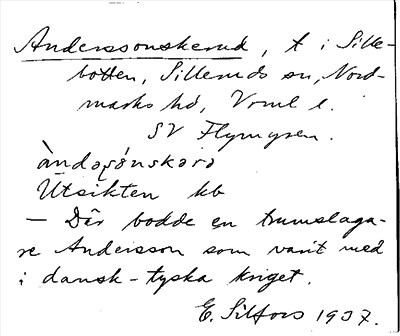 Anderssonskerud, t i Sille-
botten, Silleruds sn, Nord-
marks hd, Vrml l.
SV Flymyren.
àndaʂónskərə
Utsikten kb
— Där bodde en trumslaga-
re Andersson som varit med
i dansk-tyska kriget.
E. Silfors 1937.